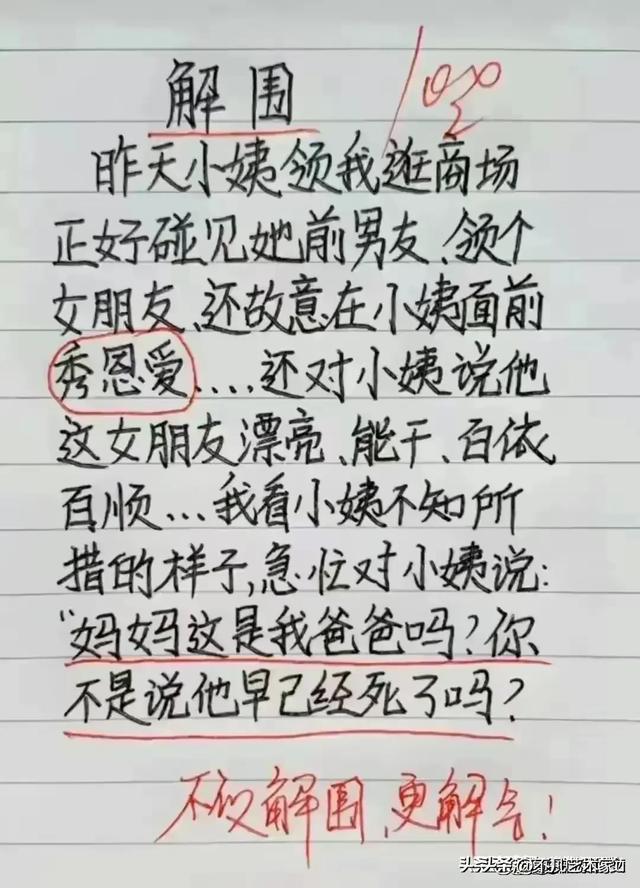 解围
100
昨天小姨领我逛商场
正好碰见她前男友、领个
女朋友、还故意在小姨面前
秀恩爱....还对小姨说他
这女朋友漂亮、能干、百依
百顺...我看小姨不知所
措的样子,急忙对小姨说:
“妈妈这是我爸爸吗?你
不是说他早已经死了吗?
不仅解围,更解气!
头条